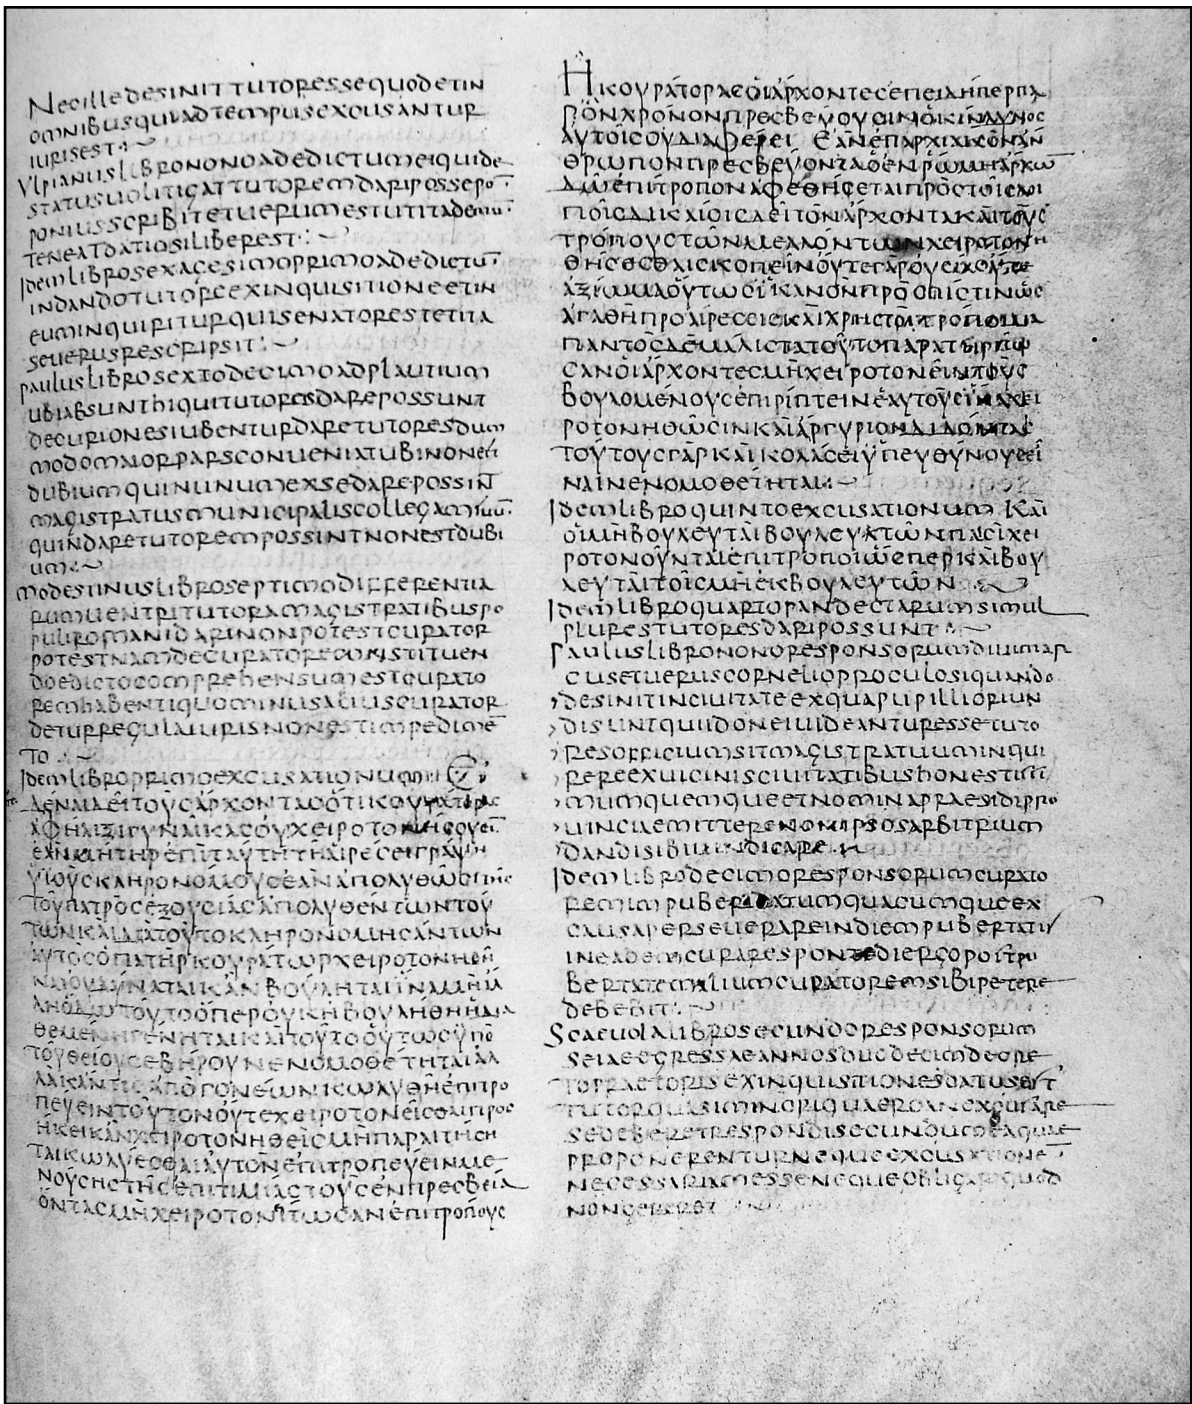 Necilledesinittutoressequodetin
omnibusquiadtempusexcusantur
iurisest
Ulpianuslibrononoadedictumeiquide
statusuolitigattutoremdariposse po
poniusscribitetuerumestutitademu
teneatdatiosiliberest
Idemlibrosexagesimoprimoadedictu
indandotutoreexinquisitioneetin
euminquiriturquisenatoresetetita
seuerusrescripsit
Pauluslibrosextodecimoadplautium
ubiabsunthiquitutoresdarepossunt
decurionesiubenturdaretutoresdum
modomaiorparsconueniatubinonest
dubiumquinunumexsedarepossint
magistratusmunicipaliscollegamsuu
quindaretutorempossintnonestdubi
um
Modestinuslibroseptimodifferentia
rumuentritutoramagistratibuspo
puliromanidarinonpotestcurator
potestnamdecuratoreconstituen
doedictocomprehensumestcurato
remhabentiquominusaliuscurator
deturregulaiurisnonestimpedime
to
Idemlibroprimoexcusationum
ΔΕΝΜΑΕΙΤΟΥΣΑΡΧΟΝΤΑΣΟΤΙΚΟΥΡΑΤΟΡΑΣ
ΕΑΝΜΗΤΗΡΕΠΙΤΑΥΤΗΤΗΑΙΡΕΣΕΙΓΡΑΨΗ
ΥΙΟΥΣΚΛΗΡΟΝΟΜΟΥΣΕΑΝΑΠΟΛΥΘΩΣΙ
ΤΟΥΠΑΤΡΟΣΕΞΟΥΣΙΑΣΑΠΟΛΥΘΕΝΤΩΝΤΟΥ
ΤΩΝΚΑΙΔΙΑΤΟΥΤΟΚΛΗΡΟΝΟΜΗΣΑΝΤΩΝ
ΑΥΤΟΣΟΠΑΤΗΡΚΟΥΡΑΤΩΡΧΕΙΡΟΤΟΝΗΘΗ
ΝΑΙΟΥΔΥΝΑΤΑΙΚΑΝΒΟΥΛΗΤΑΙΙΝΑΜΗΔΙ
ΑΛΗΣΟΔΩΤΟΥΤΟΟΠΕΡΟΥΚΗΒΟΥΛΗΘΗΗΔΙΑ
ΘΕΜΕΝΗΓΕΝΗΤΑΙΚΑΙΤΟΥΤΟΟΥΤΩΣΥΠΟ
ΤΟΥΘΕΙΟΥΣΕΒΗΡΟΥΝΕΝΟΜΟΘΕΤΗΤΑΙΑΛ
ΛΑΚΑΝΤΙΣΑΠΟΓΟΝΕΩΝΚΩΛΥΘΗΕΠΙΤΡΟ
ΠΕΥΕΙΝΤΟΥΤΟΝΟΥΤΕΧΕΙΡΟΤΟΝΕΙΣΟΜΠΡΟΣ
ΗΚΕΙΚΑΝΧΕΙΡΟΤΟΝΗΘΕΙΣΜΗΠΑΡΑΙΤΗΣΗ
ΤΑΙΚΩΛΥΕΣΘΑΙΑΥΤΟΝΕΠΙΤΡΟΠΕΥΕΙΝΜΕ
ΝΟΥΣΗΣΤΗΣΕΠΙΤΙΜΙΑΣΤΟΥΣΕΝΠΡΕΣΒΕΙΑ
ΟΝΤΑΣΜΗΧΕΙΡΟΤΟΝΙΤΩΣΑΝΕΠΙΤΡΟΠΟΥΣ
ΗΚΟΥΡΑΤΟΡΑΣΟΙΑΡΧΟΝΤΕΣΕΠΕΙΔΗΠΕΡΠΑ
ΡΟΝΧΡΟΝΟΝΠΡΕΣΒΕΥΟΥΣΙΝΟΚΙΝΔΥΝΟΣ
ΑΥΤΟΙΣΟΥΔΙΑΦΕΡΕΙ ΕΑΝΕΠΑΡΧΙΑΙΚΟΝΑΝ
ΘΡΩΠΟΝΠΡΕΣΒΕΥΟΝΤΑΟΕΝΡΩΜΗΑΡΧΩ
ΔΩΕΠΙΤΡΟΠΟΝΑΦΕΘΗΣΕΤΑΙΠΡΟΣΤΟΙΣΛΟΙ
ΠΟΙΣΔΙΚΑΙΟΙΣΔΕΙΤΟΝΑΡΧΟΝΤΑΚΑΙΤΟΥΣ
ΤΡΟΠΟΥΣΤΩΝΜΕΛΛΟΝΤΩΝΧΕΙΡΟΤΟΝΗ
ΘΗΣΕΣΘΑΙΣΚΟΠΕΙΝΟΥΤΕΓΑΡΟΥΣΙΑΟΥΤΕ
ΑΞΙΩΜΑΟΥΤΩΣΙΚΑΝΟΝΠΡΟΣΠΙΣΤΙΝΩΣ
ΑΓΑΘΗΠΡΟΑΙΡΕΣΕΙΣΚΑΙΧΡΗΣΤΟΙΤΡΟΠΟΙ
ΠΑΝΤΟΣΔΕΜΑΛΙΣΤΑΤΟΥΤΟΠΑΡΑΤΗΡΙΤΩ
ΣΑΝΟΙΑΡΧΟΝΤΕΣΜΗΧΕΙΡΟΤΟΝΕΙΝΤΟΥΣ
ΒΟΥΛΟΜΕΝΟΥΣΕΠΙΡΙΠΤΕΙΝΕΑΥΤΟΥΣΙΝΑΧΕΙ
ΡΟΤΟΝΗΘΩΣΙΝΚΑΙΑΡΓΥΡΙΟΝΔΙΔΟΝΤΑΣ
ΤΟΥΤΟΥΣΓΑΡΚΑΙΚΟΛΑΣΕΙΥΠΕΥΘΥΝΟΥΣΕΙ
ΝΑΙΝΕΝΟΜΟΘΕΤΗΤΑΙ
Idemlibroquintoexcusationum ΚΑΙ
ΟΙΜΗΒΟΥΛΕΥΤΑΙΒΟΥΛΕΥΤΩΝΠΑΙΣΙΧΕΙ
ΡΟΤΟΝΟΥΝΤΑΙΕΠΙΤΡΟΠΟΙΩΣΠΕΡΚΑΙΒΟΥ
ΛΕΥΤΑΙΤΟΙΣΜΗΕΚΒΟΥΛΕΥΤΩΝ
Idemlibroquartopandectarumsimul
plurestutoresdaripossunt
Pauluslibrononoresponsorumdiuimar
cusetueruscornelioproculosiquando
desinitinciuitateexquapupillioriun
disuntquiidoneiuideanturessetuto
resofficiumsitmagistratuuminqui
rereexuicinisciuitatibushonestissi
mumquemqueetnominapraesidipro
uinciaemitterenonipsosarbitrium
dandisibiuindicare
Idemlibrodecimoresponsorumcurato
remimpuberidatumquacumqueex
causaperseuerareindiempubertatis
ineademcuraresponditergopostpu
bertatemaliumcuratoremsibipetere
debebit
Scaeuolalibrosecundoresponsorum
seiaeegressaeannosduodecimdecre
topraetorisexinquisitionesdatusest
tutorquasiminoriquaeroanexcusare
sedeberetrespondisecundumeaquae
proponerenturnequeexcusatione
necessariamessenequeobligariquod
nongereret